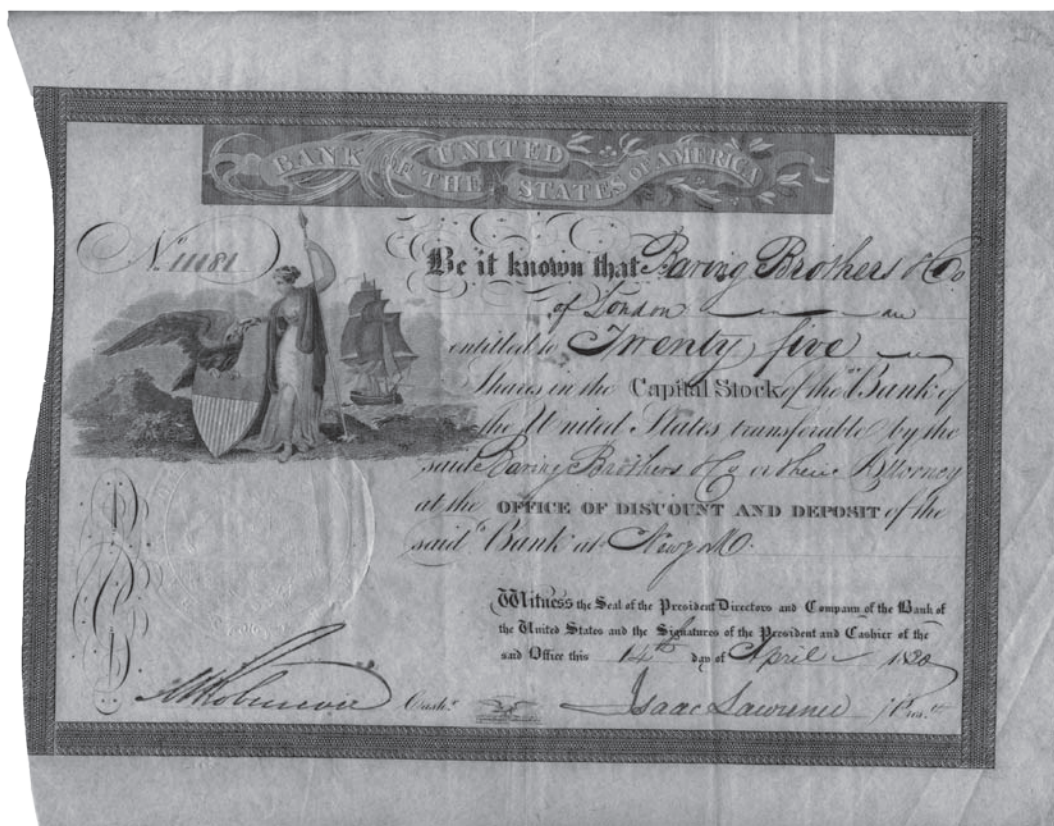 BANK OF THE UNITED STATES OF AMERICA
No. 11181
Be it known that Baring Brothers & Co
of London are
entitled to Twenty five
Shares in the Capital Stock of the "Bank of
the United States" transferable by the
said Baring Brothers & Co or their Attorney
at the OFFICE OF DISCOUNT AND DEPOSIT of the
said "Bank" at New York.
Witness the Seal of the President Directors and Company of the Bank of
the United States and the Signatures of the President and Cashier of the
said Office this 14th day of April 1820
Cashr.
Isaac Lawrence Presdt.